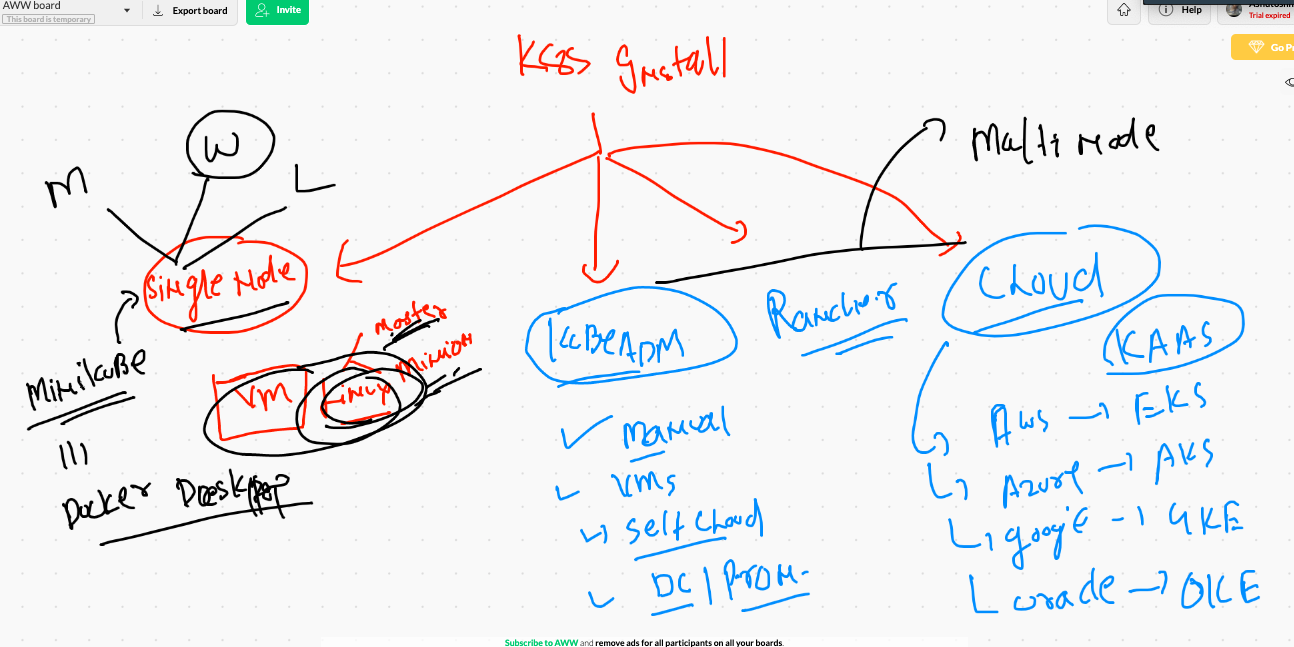 AWW board
This board is temporary
Export board
Invite
Help
Trial expired
K8s Install
Multi Node
M
W
L
Single Node
Minikube
Docker Desktop
VM
Linux
Master
Minion
KUBeADM
Manual
VMs
Self Cloud
DC | Prom.
Rancher
Cloud
KAAS
Aws → EKS
Azure → AKS
google → GKE
oracle → OKE
Subscribe to AWW and remove ads for all participants on all your boards.